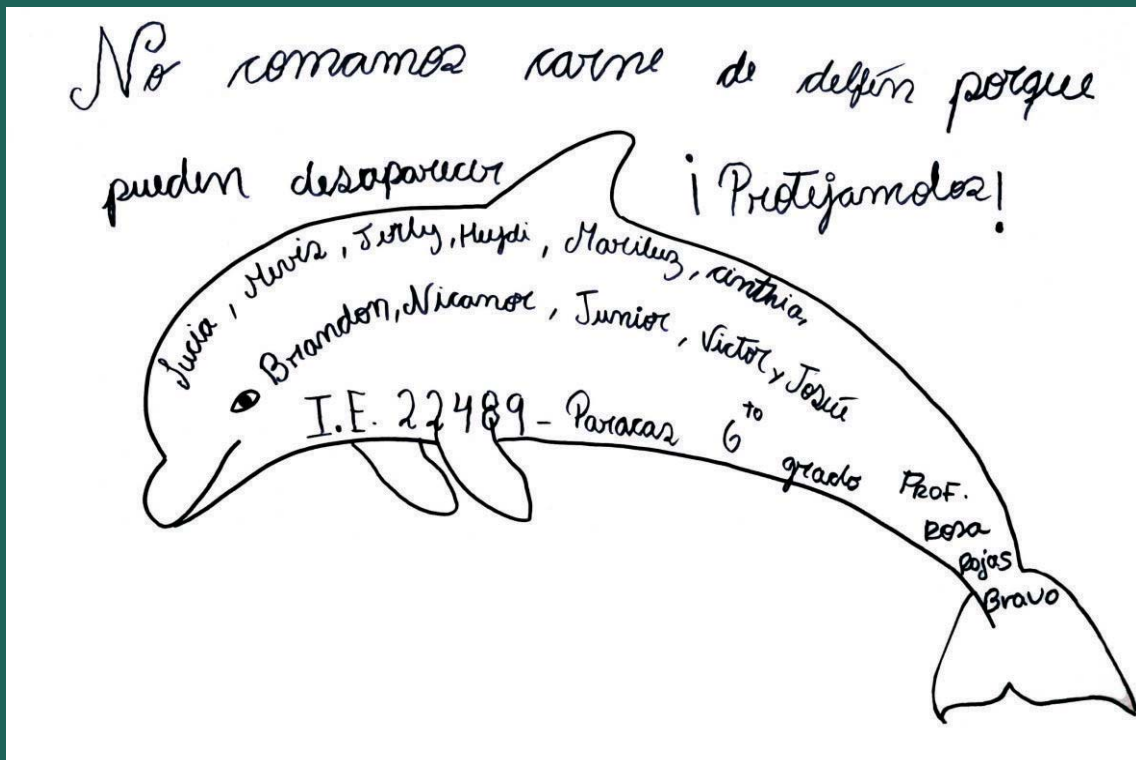 No comamos carne de delfín porque
pueden desaparecer ¡Protejamolos!
Lucia, Mevis, Jerly, Heydi, Mariluz, cinthia,
Brandon, Nicanor, Junior, Victor y Josué
I.E. 22489 - Paracas 6to
grado Prof.
Rosa
Rojas
Bravo